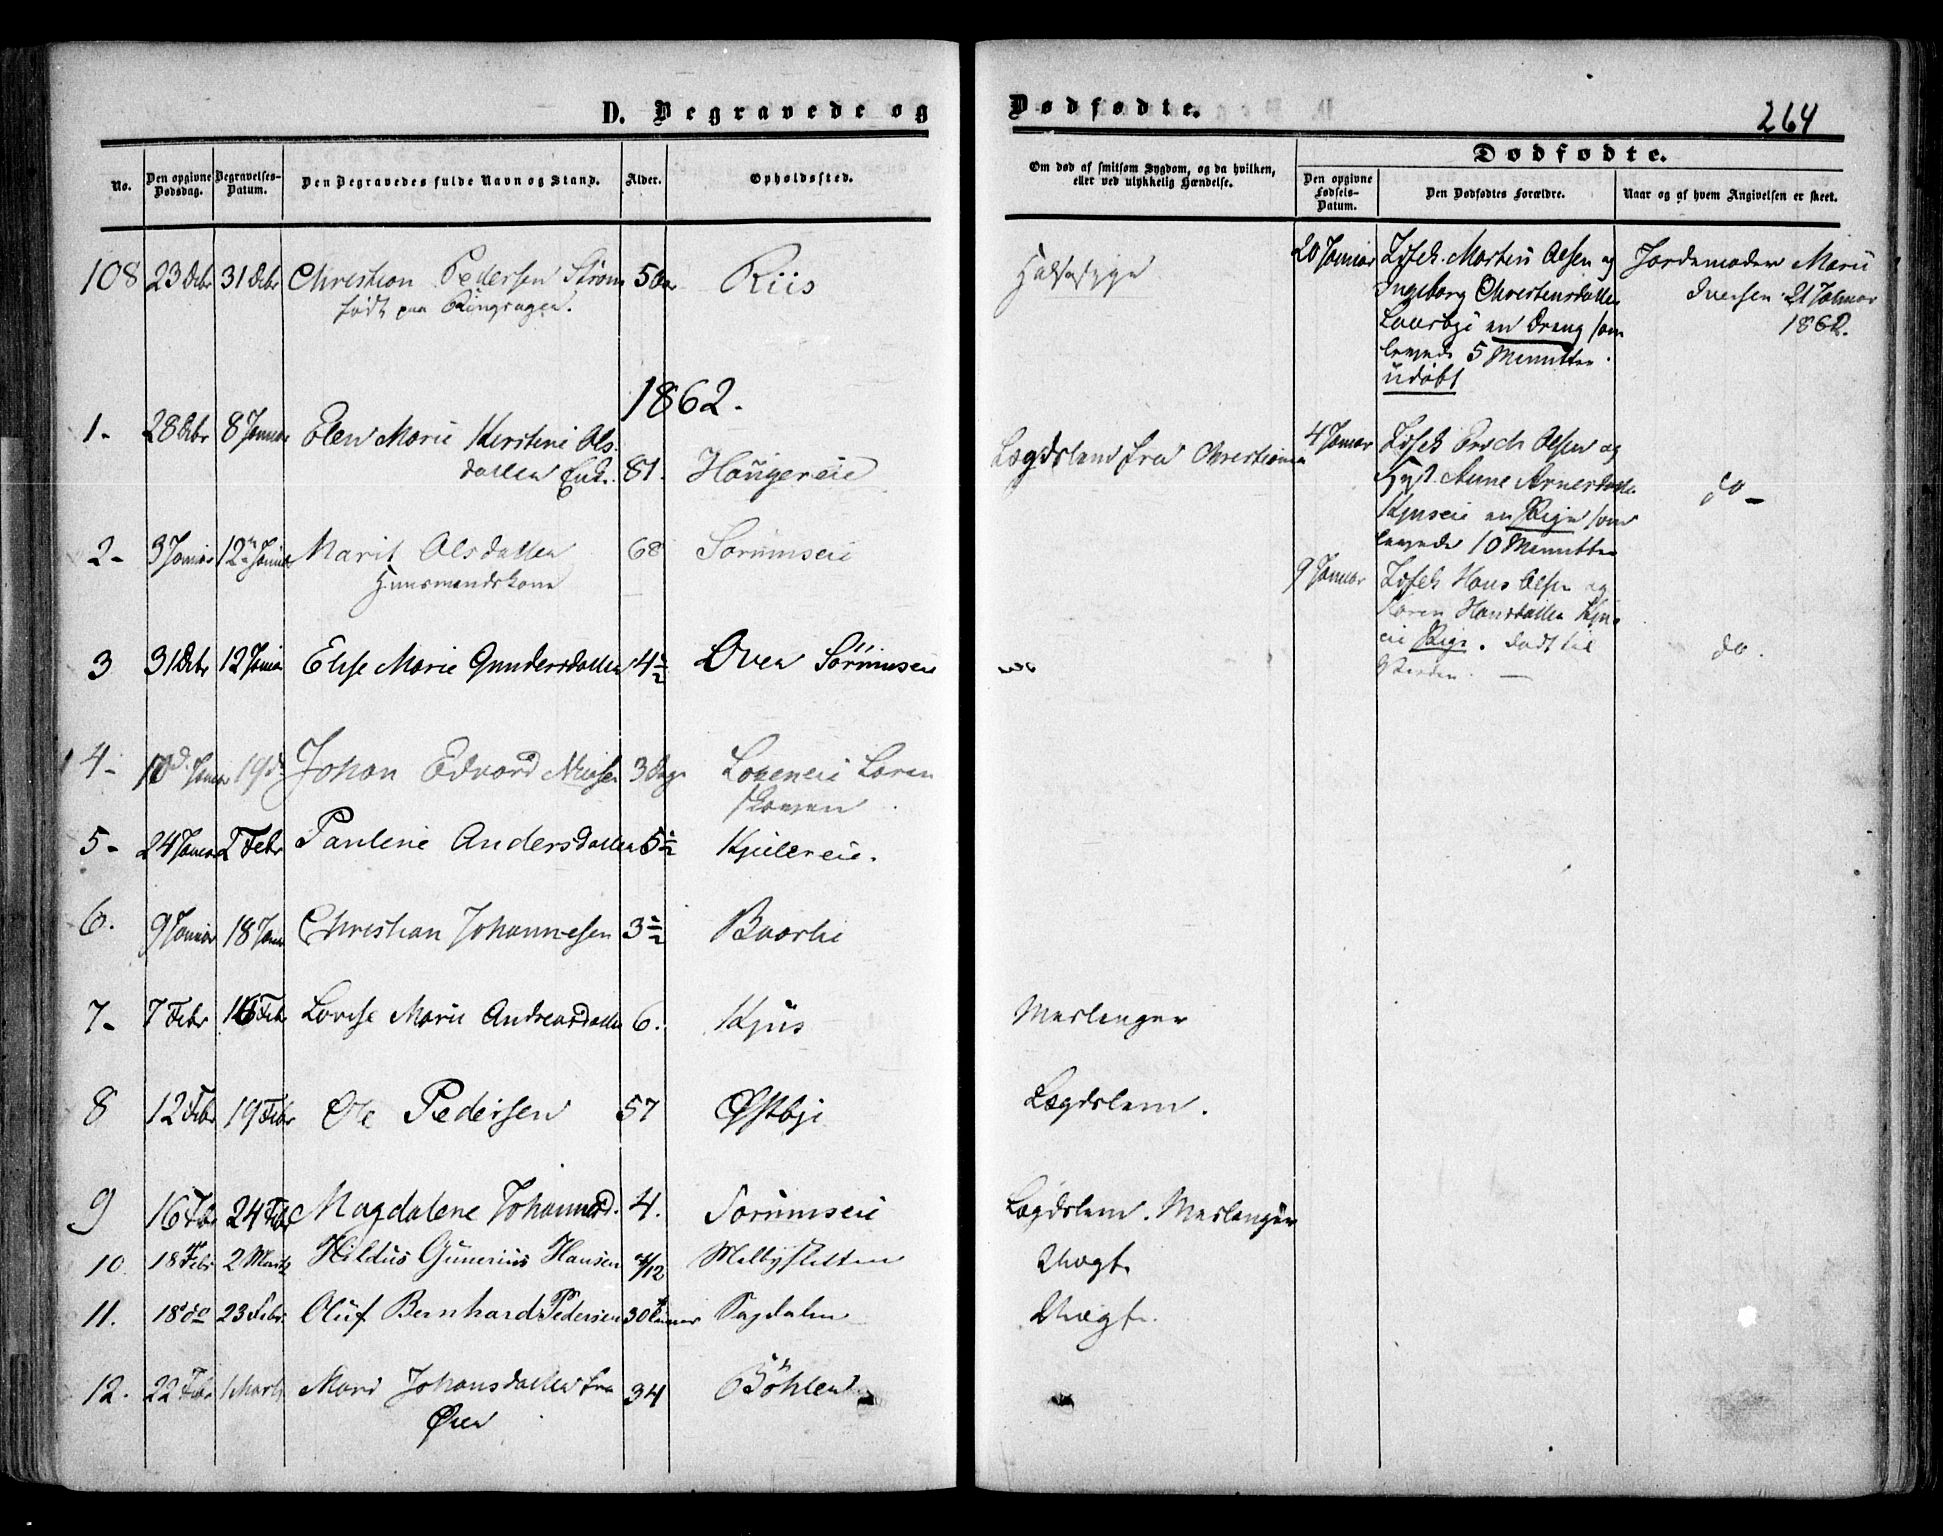 D. Begravede og Dødfødte.
264
No.
Den opgivne Dødsdag.
Begravelses-Datum.
Den Begravedes fulde Navn og Stand.
Alder.
Opholdssted.
Om død af smitsom Sygdom, og da hvilken,
eller ved ulykkelig Hændelse.
Dødfødte.
Den opgivne Fødsels-Datum.
Den Dødfødtes Forældre.
Naar og af hvem Angivelsen er skeet.
108 23 Debr 31 Debr Christian Pedersen Strøm 50 Riis
født paa Ringsager.
20 Januar Martin Olsen og
Ingeborg
en Dreng som
levende 5 Minutter.
udøbt
Jordemoder Marie
Iversen 21 Januar
1862.
1862.
1- 28 Debr 8 Januar Elen Marie Kirstine Ols-
datter Enk. 81. Haugereie
Lægdslem fra Christiania
4 Januar Olsen og
Anne
en Pige som
levende 10 Minutter
do-
2- 3 Januar 12 Januar Marit Olsdatter 68 Sørumseie
Huusmandskone
9 Januar Hans Olsen og
Karen Hansdatter
eie Pige. Død til
Verden.
do.
3 31 Debr 12 Januar Elise Marie Gundersdatter 4½ Øvre Sørumseie
4- 10 d. Januar 19 d. Johan Edvard 3 Dage Loren
skoven
5- 24 Januar 2 Febr Pauline Andersdatter 5½ Kjulereie.
6. 9 Januar 18 Janu Christian Johannesen 3½
7- 7 Febr 16 Febr Lovise Marie Andreasdatter 6. Kjus
Meslinger
8 12 Febr 19 Febr Ole Pedersen 57 Østbye
Lægdslem.
9 16 Febr 24 Febr Magdalene Johannesd. 4. Sørumseie
Lægdslem. Meslinger
10. 18 Febr 2 Marts Hildus Gunerius Hansen Melbysletten
11. 18 do 23 Febr. Oluf Bernhard Pedersen 30 Sagdalen
12. 22 Febr 1 Marts Mari Johansdatter fra 34 Bøhler
Øier